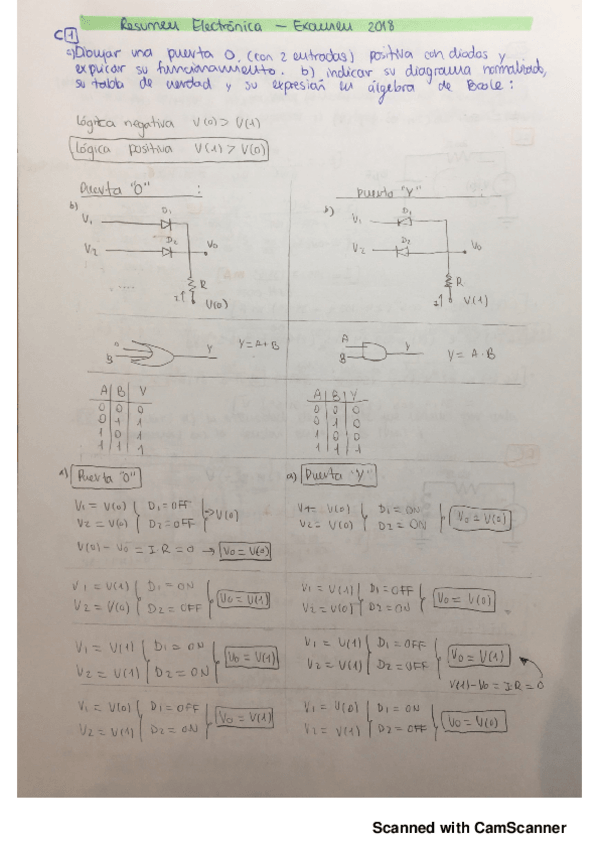 Resumen Electrónica - Examen 2018
C1
a) Dibujar una puerta O, (con 2 entradas) positiva con diodos y
explicar su funcionamiento. b) indicar su diagrama normalizado,
su tabla de verdad y su expresión en álgebra de Boole:
Lógica negativa V(0) > V(1)
Lógica positiva V(1) > V(0)
Puerta "O" :
b)
V1 D1
V2 D2 Vo
R
I↑ V(0)
Puerta "Y" :
b)
V1 D1
V2 D2 Vo
R
I↑ V(1)
B Y Y = A+B
A B Y Y = A·B
A B Y
0 0 0
0 1 1
1 0 1
1 1 1
A B Y
0 0 0
0 1 0
1 0 0
1 1 1
a) Puerta "O"
V1 = V(0) { D1 = OFF
V2 = V(0) { D2 = OFF } => V(0)
V(0) - Vo = I·R = 0 → Vo = V(0)
V1 = V(1) { D1 = ON
V2 = V(0) { D2 = OFF } Vo = V(1)
V1 = V(1) { D1 = ON
V2 = V(1) { D2 = ON } Vo = V(1)
V1 = V(0) { D1 = OFF
V2 = V(1) { D2 = ON } Vo = V(1)
a) Puerta "Y"
V1 = V(0) { D1 = ON
V2 = V(0) { D2 = ON } Vo = V(0)
V1 = V(1) { D1 = OFF
V2 = V(0) { D2 = ON } Vo = V(0)
V1 = V(1) { D1 = OFF
V2 = V(1) { D2 = OFF } Vo = V(1)
V(1) - Vo = I·R = 0
V1 = V(0) { D1 = ON
V2 = V(1) { D2 = OFF } Vo = V(0)
Scanned with CamScanner